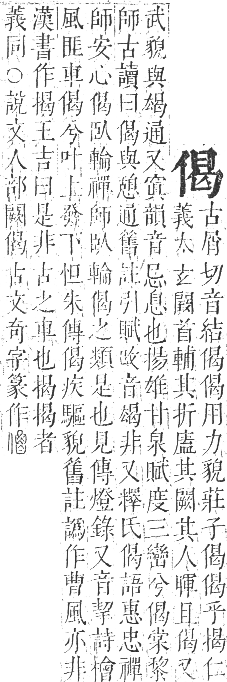 偈
古屑切音結偈偈用力貌莊子偈偈乎揭仁
義太玄闕首輔其折廬其闕其人暉且偈又
武貌與朅通又寘韻音忌息也揚雄甘泉賦度三巒兮偈棠黎
師古讀曰偈與憩通舊註引賦改音朅非又釋氏偈語惠忠禪
師安心偈臥輪禪師臥輪偈之類是也見傳燈錄又音挈詩檜
風匪車偈兮叶上發下怛朱傳偈疾驅貌舊註譌作曹風亦非
漢書作揭王吉曰是非古之車也揭揭者
義同○說文人部闕偈古文奇字篆作